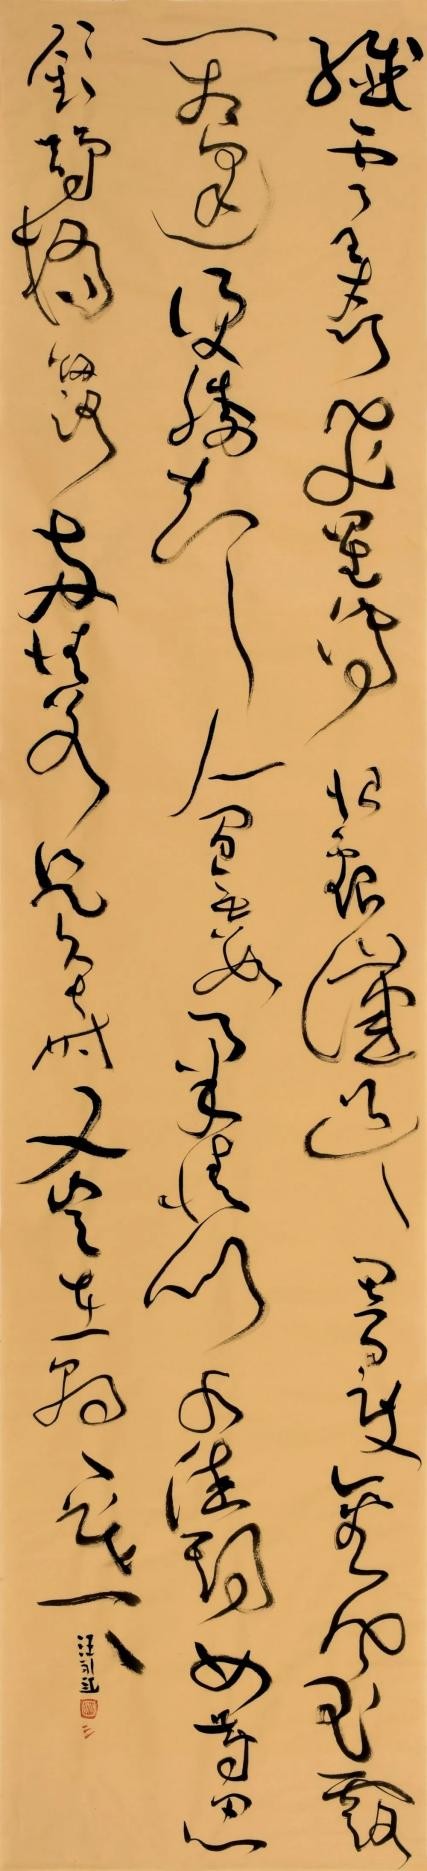 纖雲弄巧飛星傳恨銀漢迢々暗度金風玉露
一相逢便勝却人間無數柔情似水佳期如夢忍
顧鵲橋歸路兩情若是久長時又豈在朝々暮々
汪永江